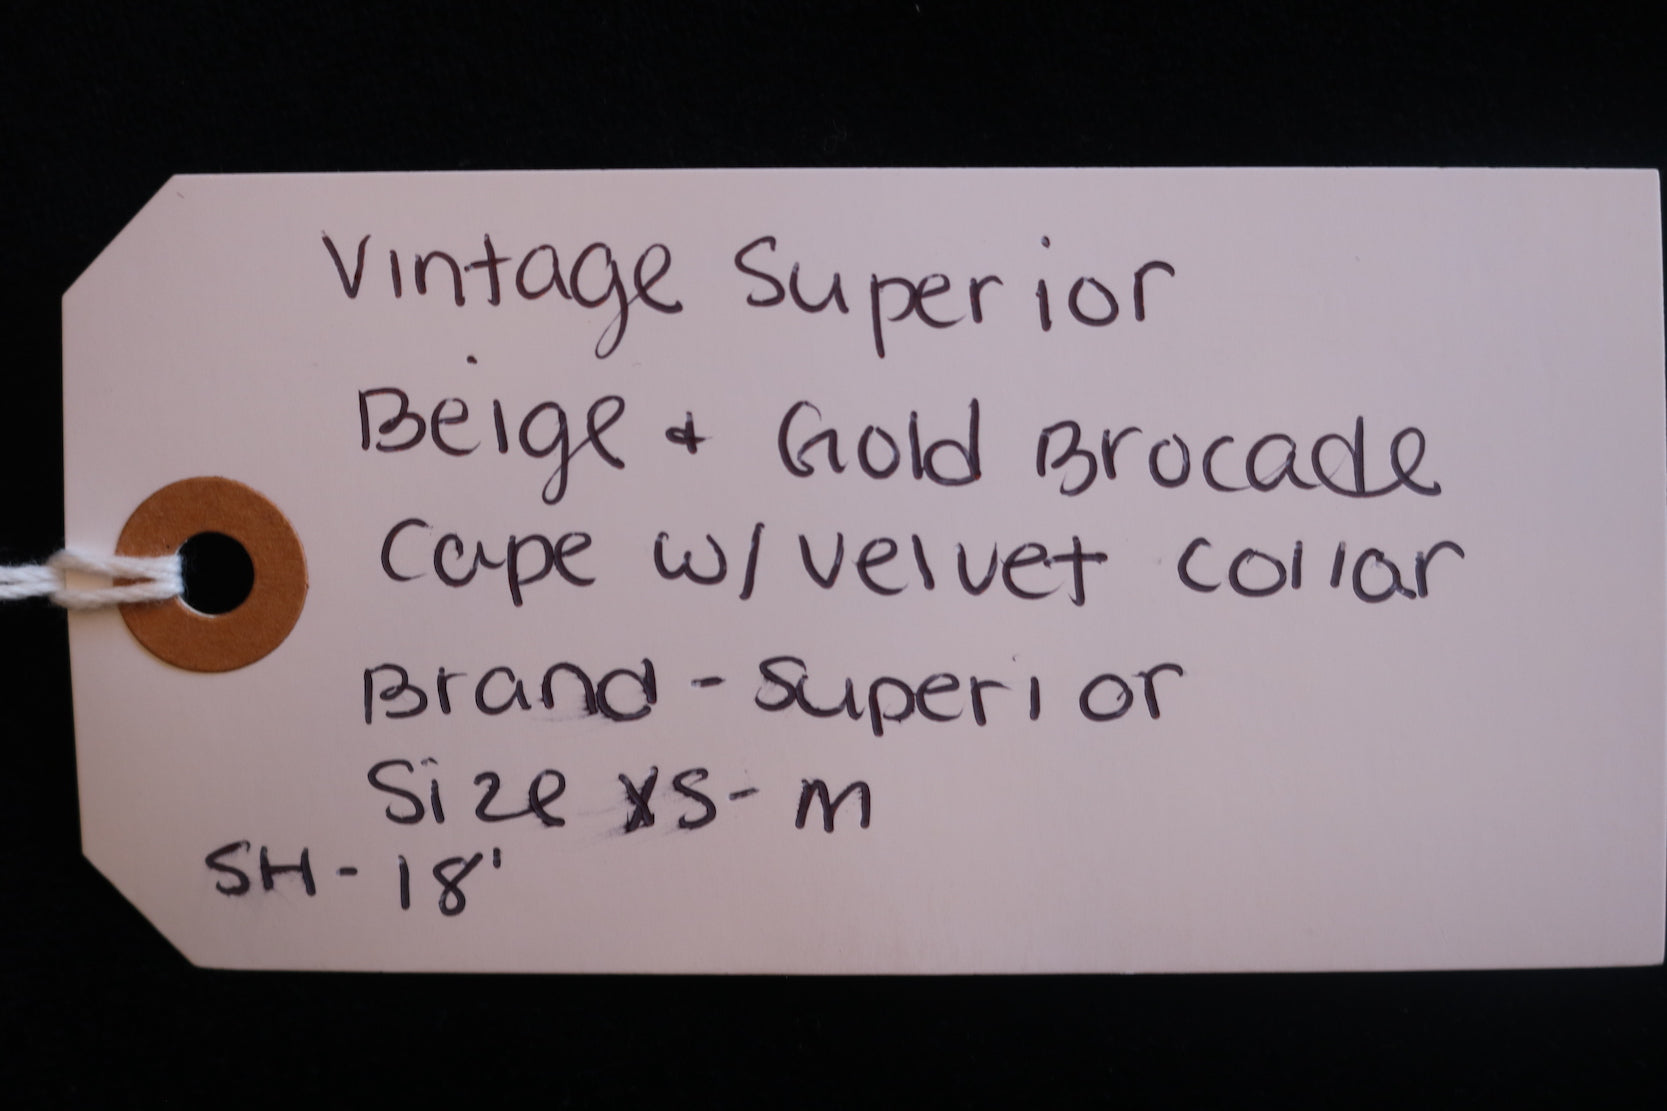 Vintage Superior
Beige + Gold Brocade
Cape w/ velvet collar
Brand - Superior
Size XS - M
SH - 18'